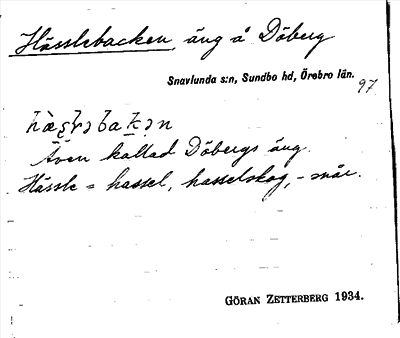 Hässlebacken, äng å Döberg
Snavlunda s:n, Sundbo hd, Örebro län.
97
Även kallad Döbergs äng.
Hässle = hassel, hasselskog, - snår.
GÖRAN ZETTERBERG 1934.